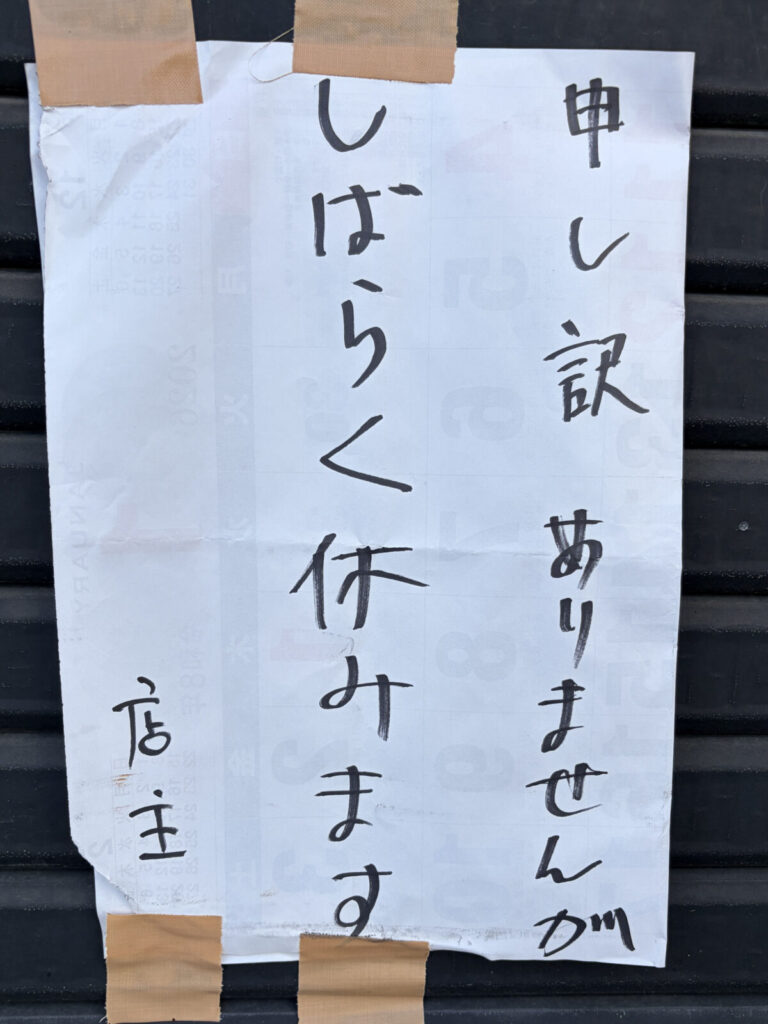 申し訳ありませんが
しばらく休みます
店主